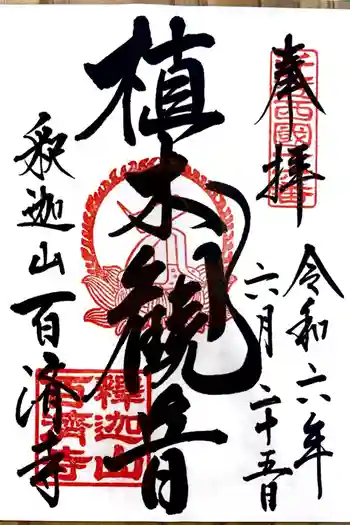 奉拝
令和六年
六月二十五日
植木観音
釈迦山百済寺
釋迦山
百濟寺